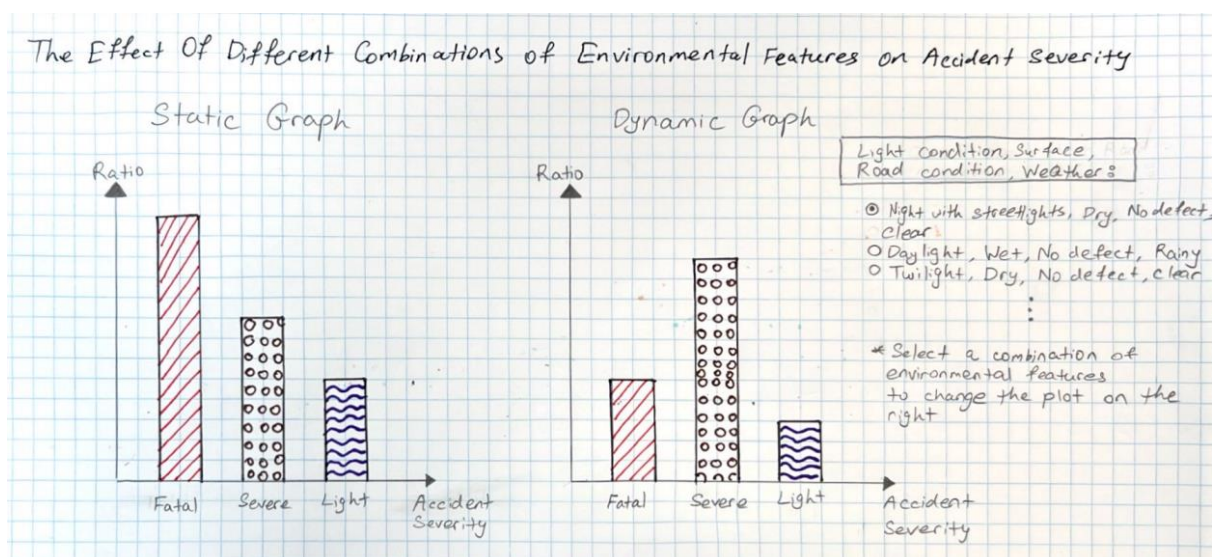 The Effect Of Different Combinations of Environmental Features on Accident Severity
Static Graph
Ratio
Fatal
Severe
Light
Accident
Severity
Dynamic Graph
Ratio
Fatal
Severe
Light
Accident
Severity
Light condition, Surface,
Road condition, Weather:
Night with streetlights, Dry, No defect,
clear
Daylight, Wet, No defect, Rainy
Twilight, Dry, No defect, clear
* Select a combination of
environmental features
to change the plot on the
right